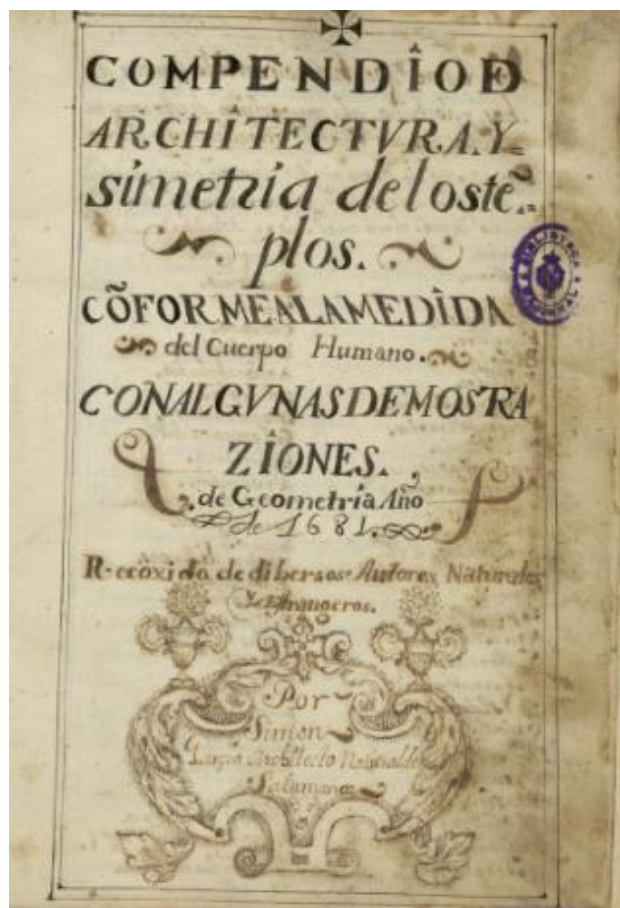 COMPENDÎO D
ARCHÎTECTVRA. Y
simetria de los tẽ
plos.
CÕFORME ALA MEDÎDA
del Cuerpo Humano.
CON ALGVNAS DEMOSTRA
ZÎONES.
de Geometria Año
de 1681.
Recoxido de dibersos Autores Naturales
y Estrangeros.
Por
Simon
Garçia Architecto Natural de
Salamanca
BIBLIOTECA NACIONAL